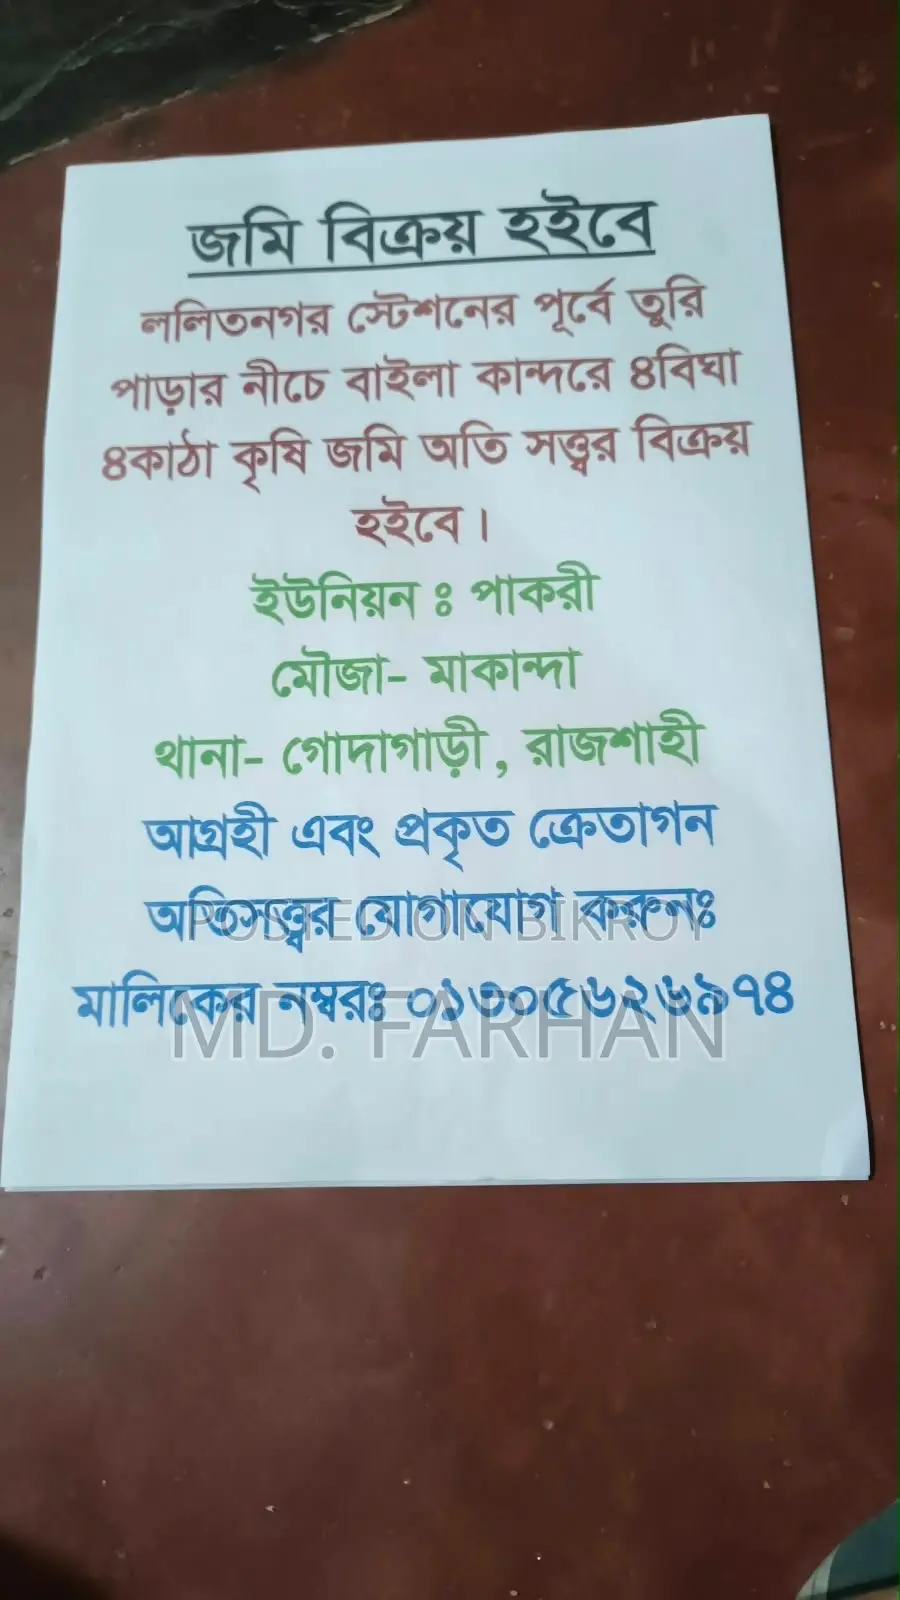 জমি বিক্রয় হইবে
ললিতনগর স্টেশনের পূর্বে তুরি
পাড়ার নীচে বাইলা কান্দরে ৪বিঘা
৪কাঠা কৃষি জমি অতি সত্ত্বর বিক্রয়
হইবে।
ইউনিয়ন ঃ পাকরী
মৌজা- মাকান্দা
থানা- গোদাগাড়ী, রাজশাহী
আগ্রহী এবং প্রকৃত ক্রেতাগন
অতিসত্ত্বর যোগাযোগ করুনঃ
POSTED ON BIKROY
মালিকের নম্বরঃ ০১৩০৫৬২৬৯৭৪
MD. FARHAN